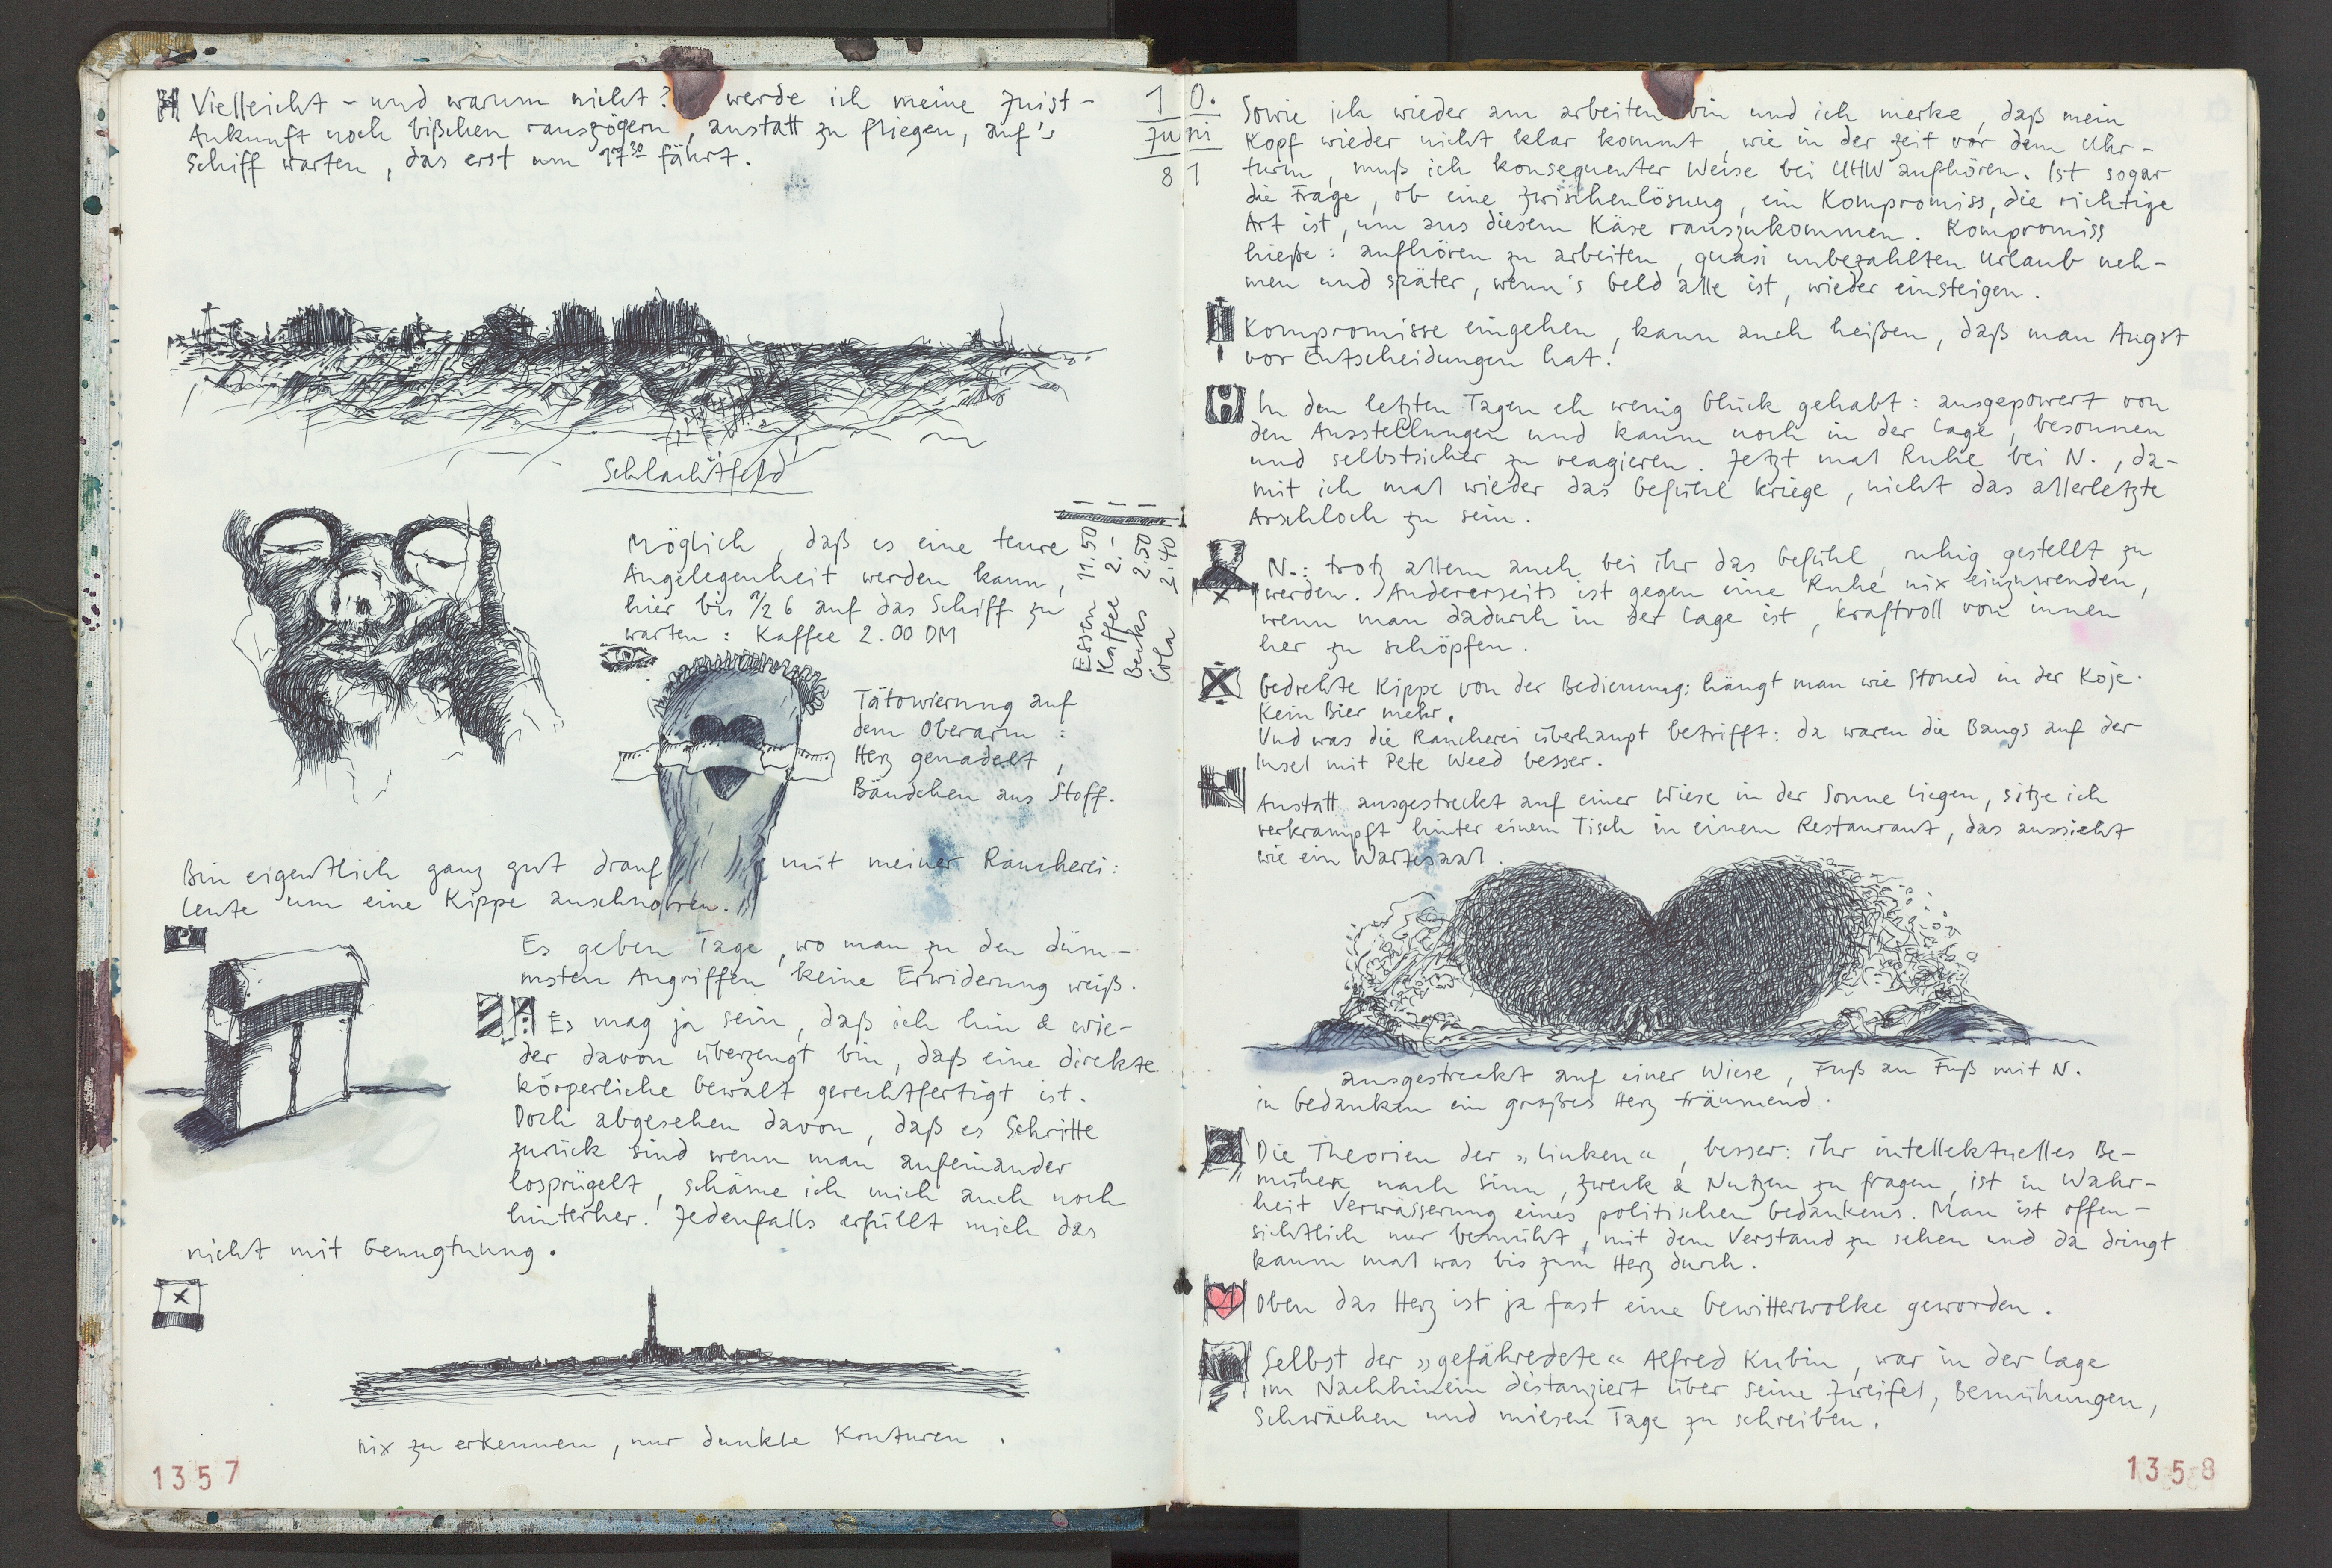 Vielleicht - und warum nicht? werde ich meine Juist-
Ankunft noch bißchen rauszögern, anstatt zu fliegen, auf's
Schiff warten, das erst um 17³⁰ fährt.
Schlachtfeld
Möglich, daß es eine teure
Angelegenheit werden kann,
hier bis 1/2 6 auf das Schiff zu
warten: Kaffee 2.00 DM
Essen 11.50
Kaffee 2.-
Becks 2.50
Cola 2.40
Tätowierung auf
dem Oberarm:
Herz genadelt,
Bändchen aus Stoff.
Bin eigentlich ganz gut drauf mit meiner Raucherei:
Leute um eine Kippe anschnorren.
Es geben Tage, wo man zu den düm-
msten Angriffen keine Erwiderung weiß.
Es mag ja sein, daß ich hin & wie-
der davon überzeugt bin, daß eine direkte
körperliche Gewalt gerechtfertigt ist.
Doch abgesehen davon, daß es Schritte
zurück sind wenn man aufeinander
losprügelt, schäme ich mich auch noch
hinterher. Jedenfalls erfüllt mich das
nicht mit Genugtuung.
x
nix zu erkennen, nur dunkle Konturen.
1357
10.
Juni
81
Sowie ich wieder am arbeiten bin und ich merke, daß mein
Kopf wieder nicht klar kommt, wie in der Zeit vor dem Uhr-
turm, muß ich konsequenter Weise bei UHW aufhören. Ist sogar
die Frage, ob eine Zwischenlösung, ein Kompromiss, die richtige
Art ist, um aus diesem Käse rauszukommen. Kompromiss
hieße: aufhören zu arbeiten, quasi unbezahlten Urlaub neh-
men und später, wenn's Geld alle ist, wieder einsteigen.
Kompromisse eingehen, kann auch heißen, daß man Angst
vor Entscheidungen hat!
In den letzten Tagen eh wenig Glück gehabt: ausgepowert von
den Ausstellungen und kaum noch in der Lage, besonnen
und selbstsicher zu reagieren. Jetzt mal Ruhe bei N., da-
mit ich mal wieder das Gefühl kriege, nicht das allerletzte
Arschloch zu sein.
N.: trotz allem auch bei ihr das Gefühl, ruhig gestellt zu
werden. Andererseits ist gegen eine Ruhe nix einzuwenden,
wenn man dadurch in der Lage ist, kraftvoll von innen
her zu schöpfen.
Gedrehte Kippe von der Bedienung: hängt man wie Stoned in der Koje.
Kein Bier mehr.
Und was die Raucherei überhaupt betrifft: da waren die Bangs auf der
Insel mit Pete Weed besser.
Anstatt ausgestreckt auf einer Wiese in der Sonne liegen, sitze ich
verkrampft hinter einem Tisch in einem Restaurant, das aussieht
wie ein Wartesaal.
ausgestreckt auf einer Wiese, Fuß an Fuß mit N.
in Gedanken ein großes Herz träumend.
Die Theorien der »linken«, besser: ihr intellektuelles Be-
mühen nach Sinn, Zweck & Nutzen zu fragen, ist in Wahr-
heit Verwässerung eines politischen Gedankens. Man ist offen-
sichtlich nur bemüht, mit dem Verstand zu sehen und da dringt
kaum mal was bis zum Herz durch.
Oben das Herz ist ja fast eine Gewitterwolke geworden.
Selbst der »gefähredete« Alfred Kubin, war in der Lage
im Nachhinein distanziert über seine Zweifel, Bemühungen,
Schwächen und miesen Tage zu schreiben.
1358